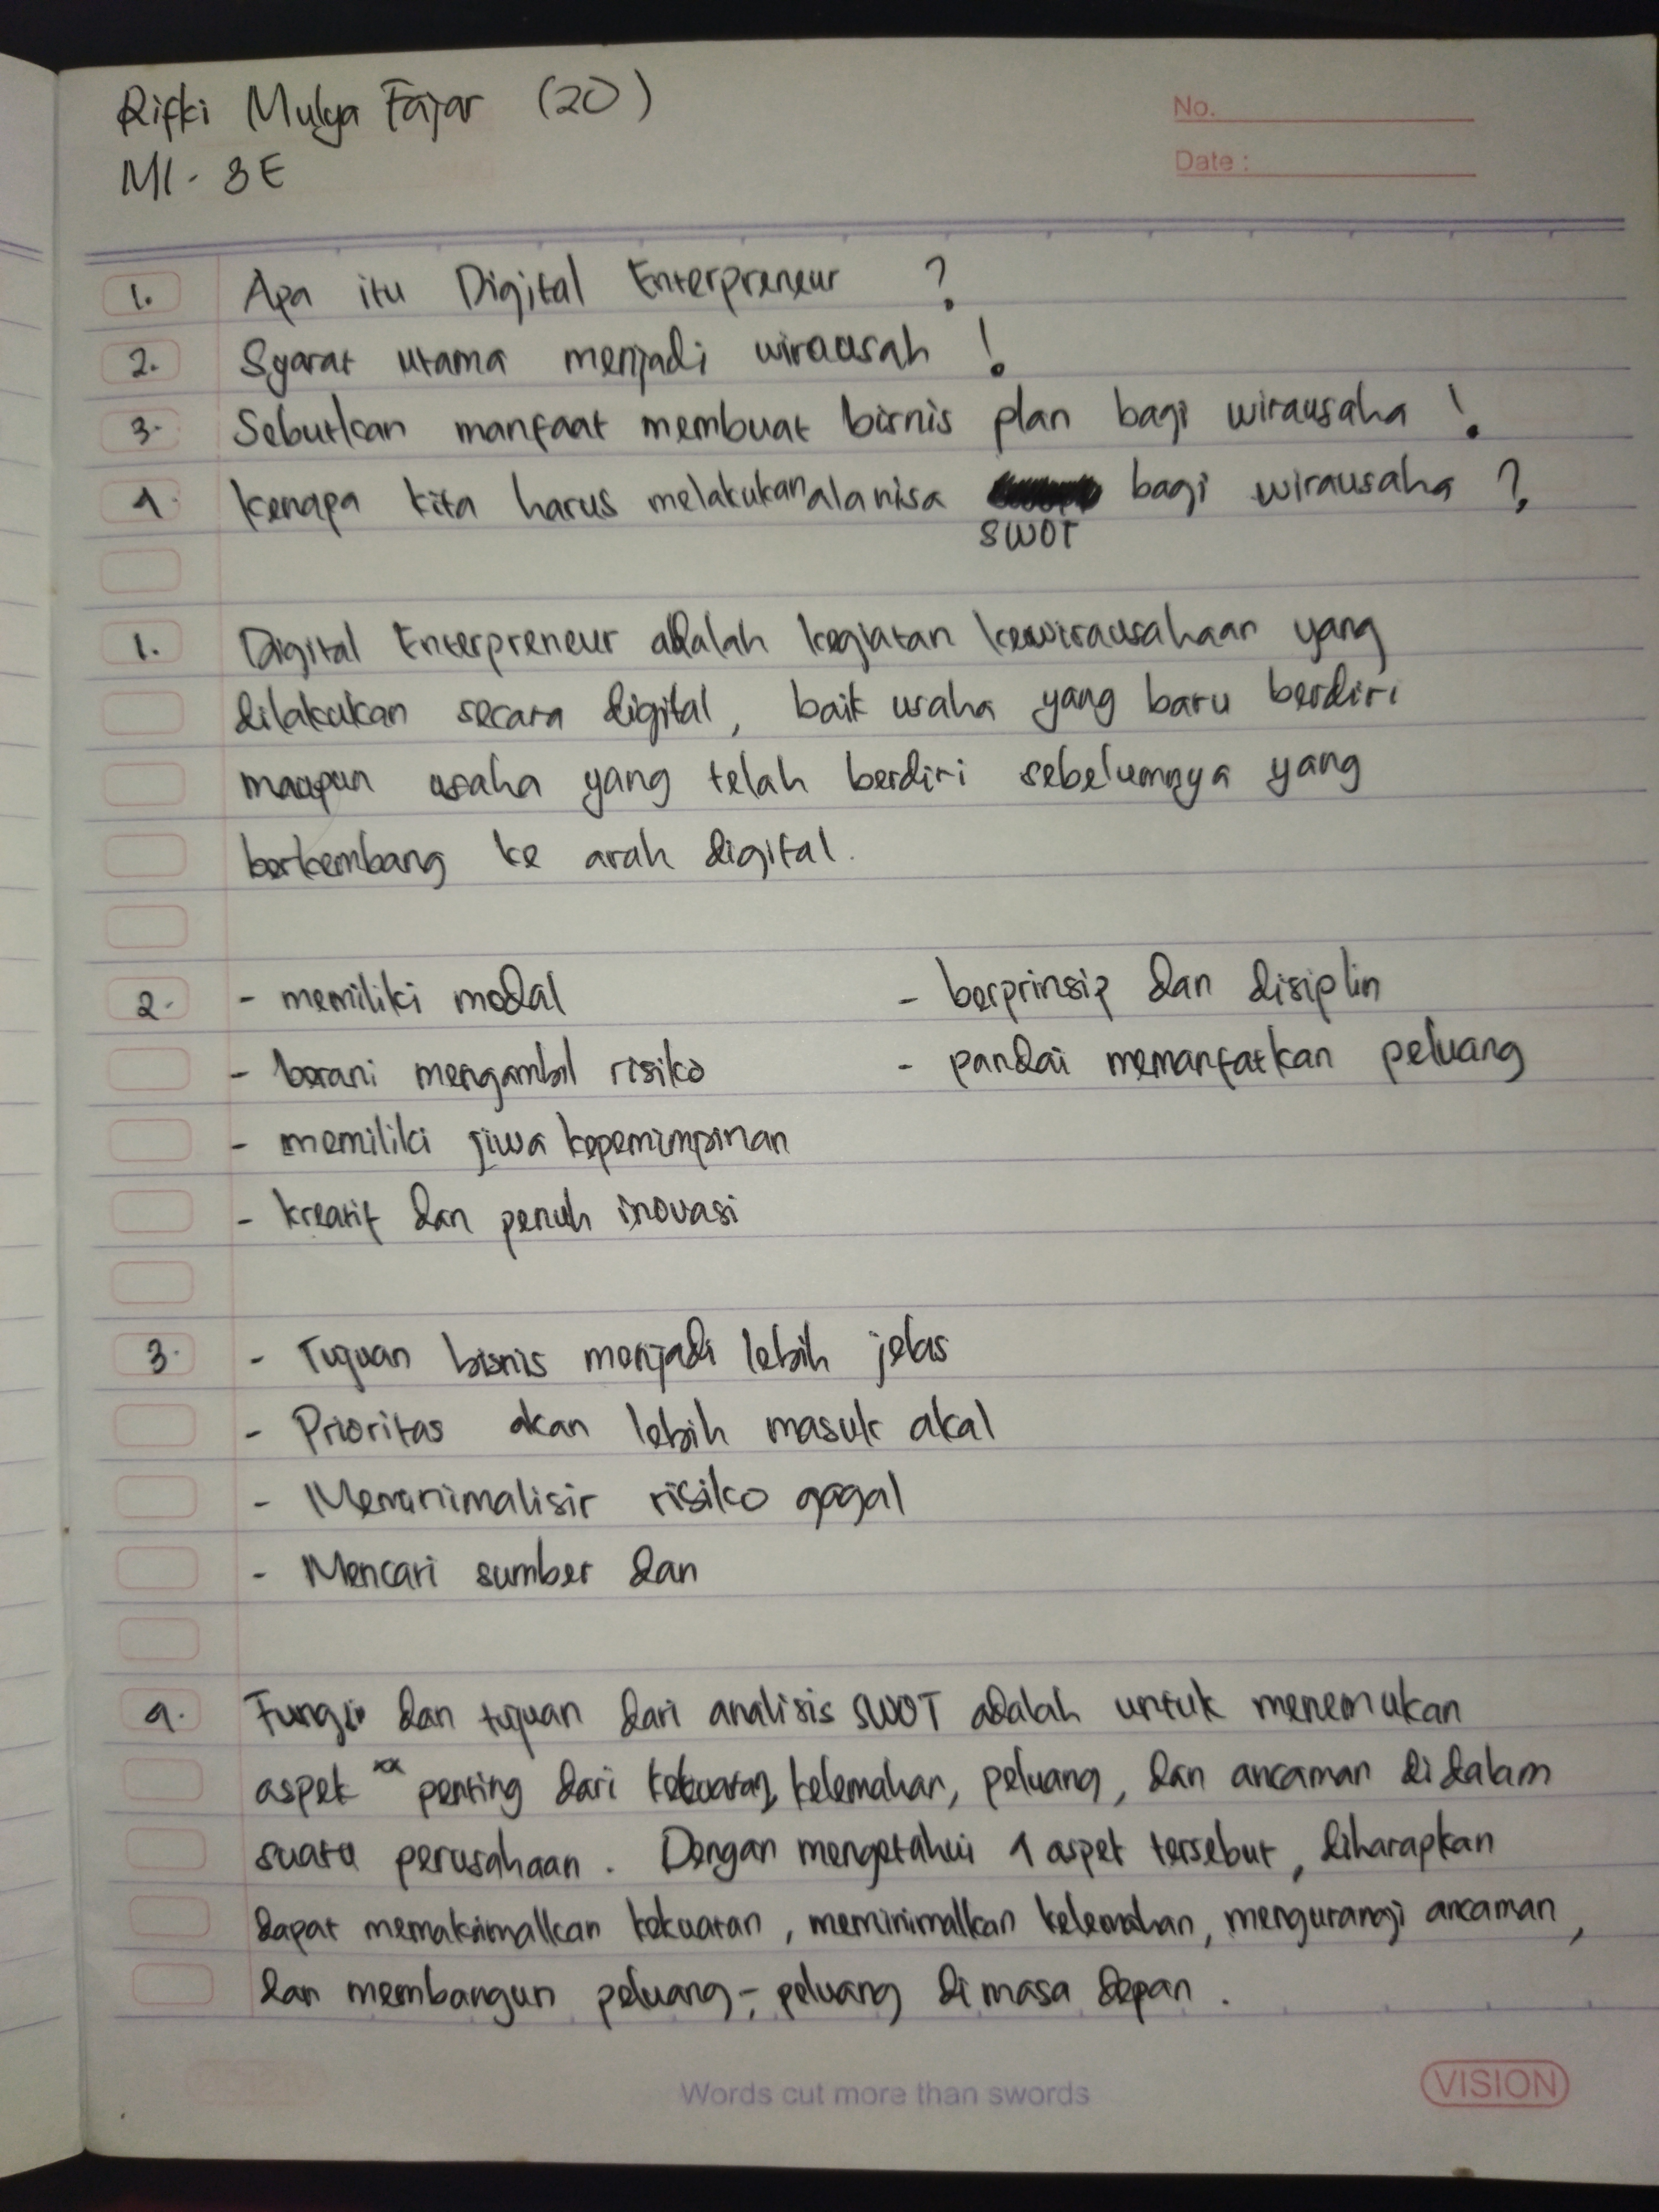 Rifki Mulya Fajar (20)
MI - 3E
No.
Date :
1. Apa itu Digital Enterpreneur ?
2. Syarat utama menjadi wirausah !
3. Sebutkan manfaat membuat bisnis plan bagi wirausaha !
4. kenapa kita harus melakukan alanisa SWOT bagi wirausaha ?
1. Digital Enterpreneur adalah kegiatan kewirausahaan yang
dilakukan secara digital, baik usaha yang baru berdiri
maupun usaha yang telah berdiri sebelumnya yang
berkembang ke arah digital.
2. - memiliki modal - berprinsip dan disiplin
- berani mengambil risiko - pandai memanfatkan peluang
- memiliki jiwa kepemimpinan
- kreatif dan penuh inovasi
3. - Tujuan bisnis menjadi lebih jelas
- Prioritas akan lebih masuk akal
- risiko gagal
- Mencari sumber dan
4. Fungsi dan tujuan dari analisis SWOT adalah untuk menemukan
aspek penting dari kekuatan, kelemahan, peluang, dan ancaman didalam
suatu perusahaan. Dengan mengetahui 4 aspek tersebut, diharapkan
dapat memaksimalkan kekuatan, meminimalkan kelemahan, mengurangi ancaman,
dan membangun peluang-peluang di masa depan.
Words cut more than swords
VISION